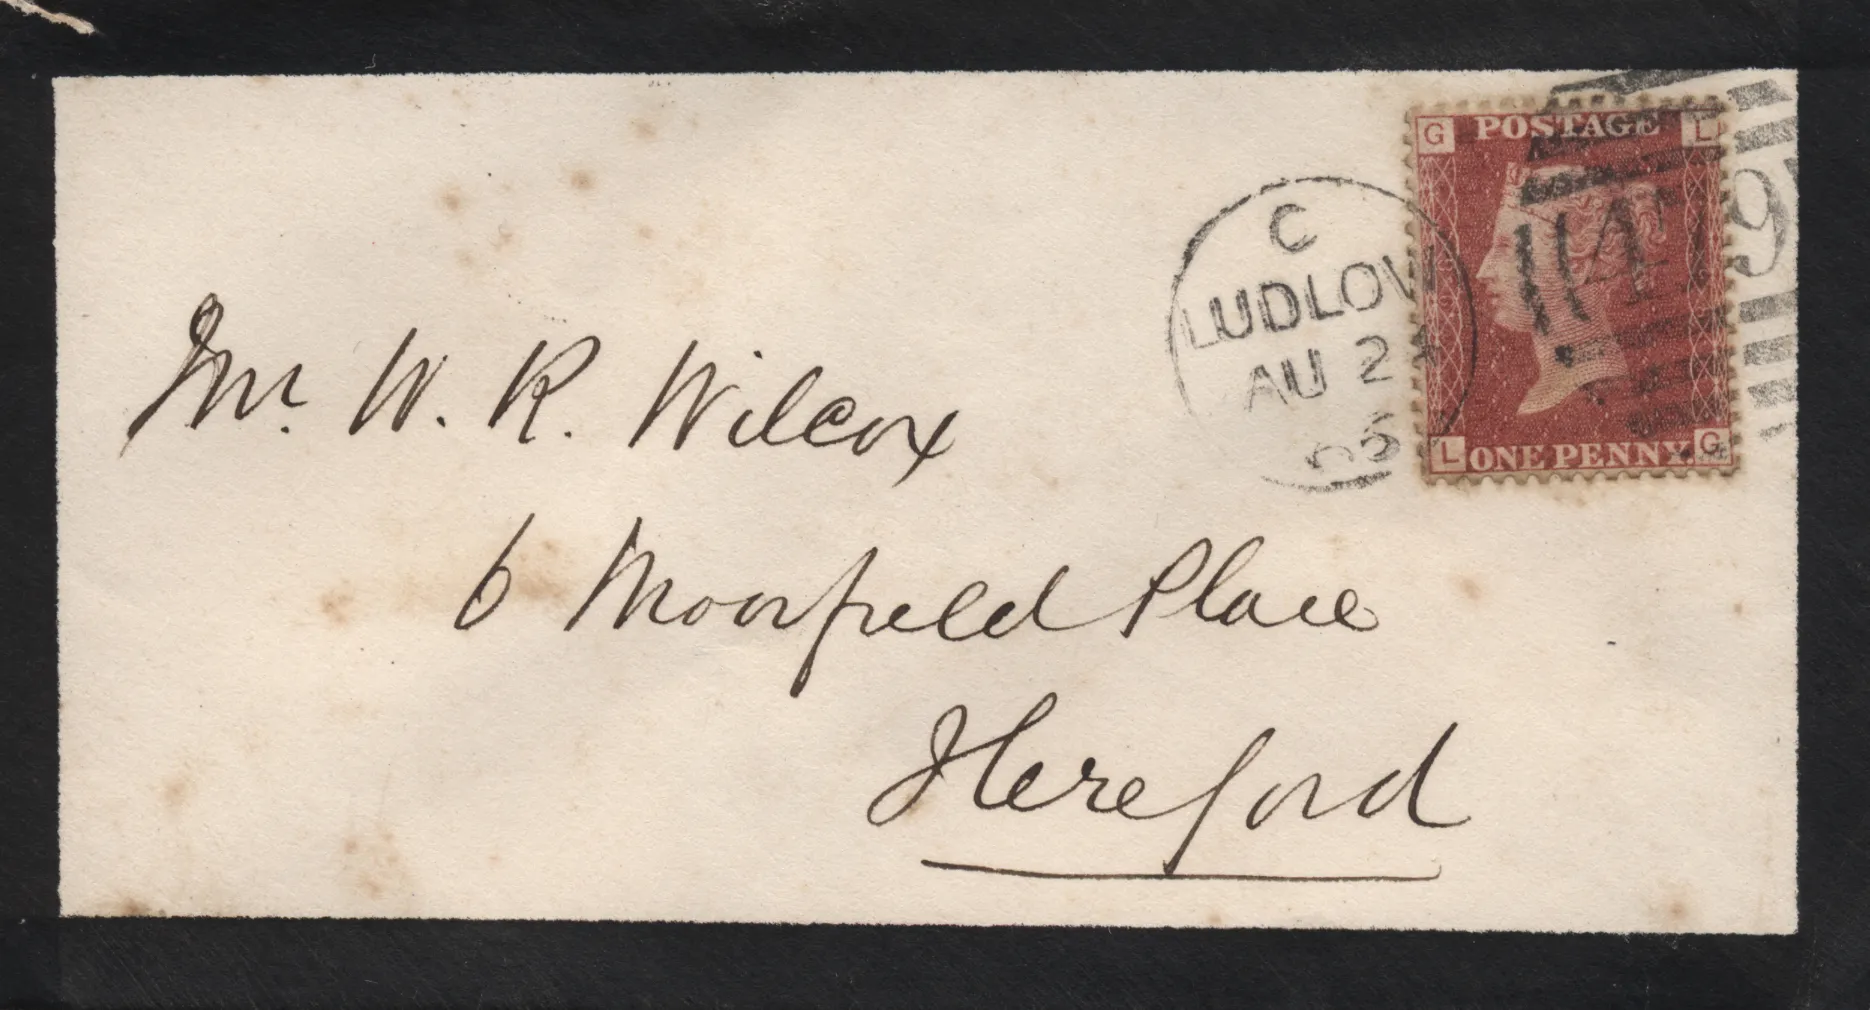 G POSTAGE L
C
LUDLOW
AU 2
65
479
L ONE PENNY G
Mr. W. R. Wilcox
6 Moorfield Place
Hereford